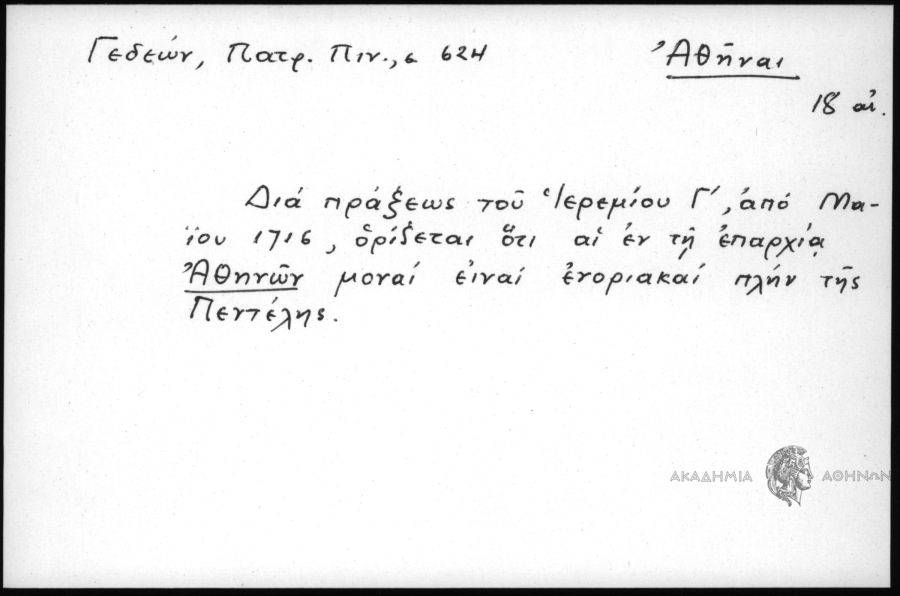 Γεδεών, Πατρ. Πιν., σ 624
Ἀθῆναι
18 αἰ.
Διά πράξεως τοῦ Ἱερεμίου Γ΄, ἀπό Μα-
ΐου 1716, ὁρίζεται ὅτι αἱ ἐν τῇ ἐπαρχίᾳ
Ἀθηνῶν μοναί εἰναί ἐνοριακαί πλήν τῆς
Πεντέλης.
ΑΚΑΔΗΜΙΑ ΑΘΗΝΩΝ